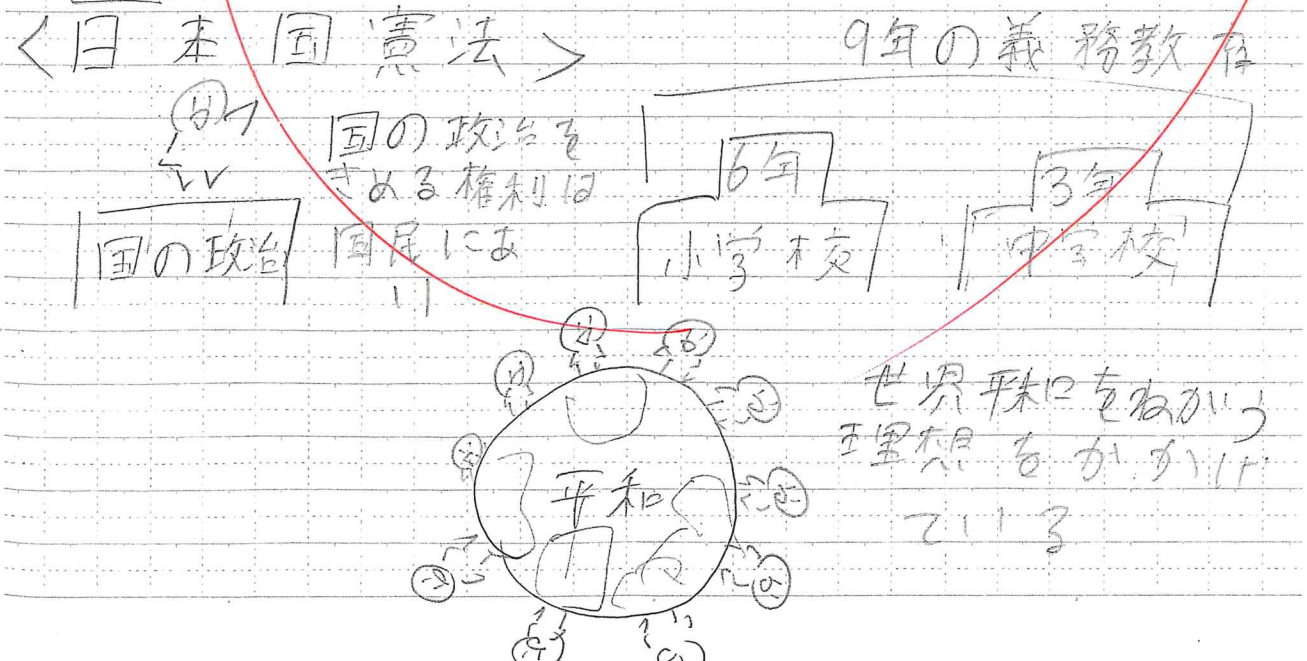 <日本国憲法>
9年の義務教育
国の政治を
きめる権利は
国民にあ
り
国の政治
6年
小学校
3年
中学校
平和
世界平和をねがう
理想をかかげ
ている